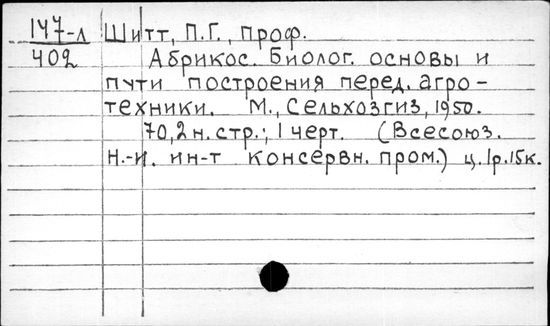 147-л Шитт, П.Г., проф.
402 Абрикос. Биолог. основы и
пути построения перед. агро-
техники. М., Сельхозгиз, 1950.
70, 2 н. стр.; 1 черт. (Всесоюз.
Н.-и. ин-т консервн. пром.) ц. 1р. 15к.